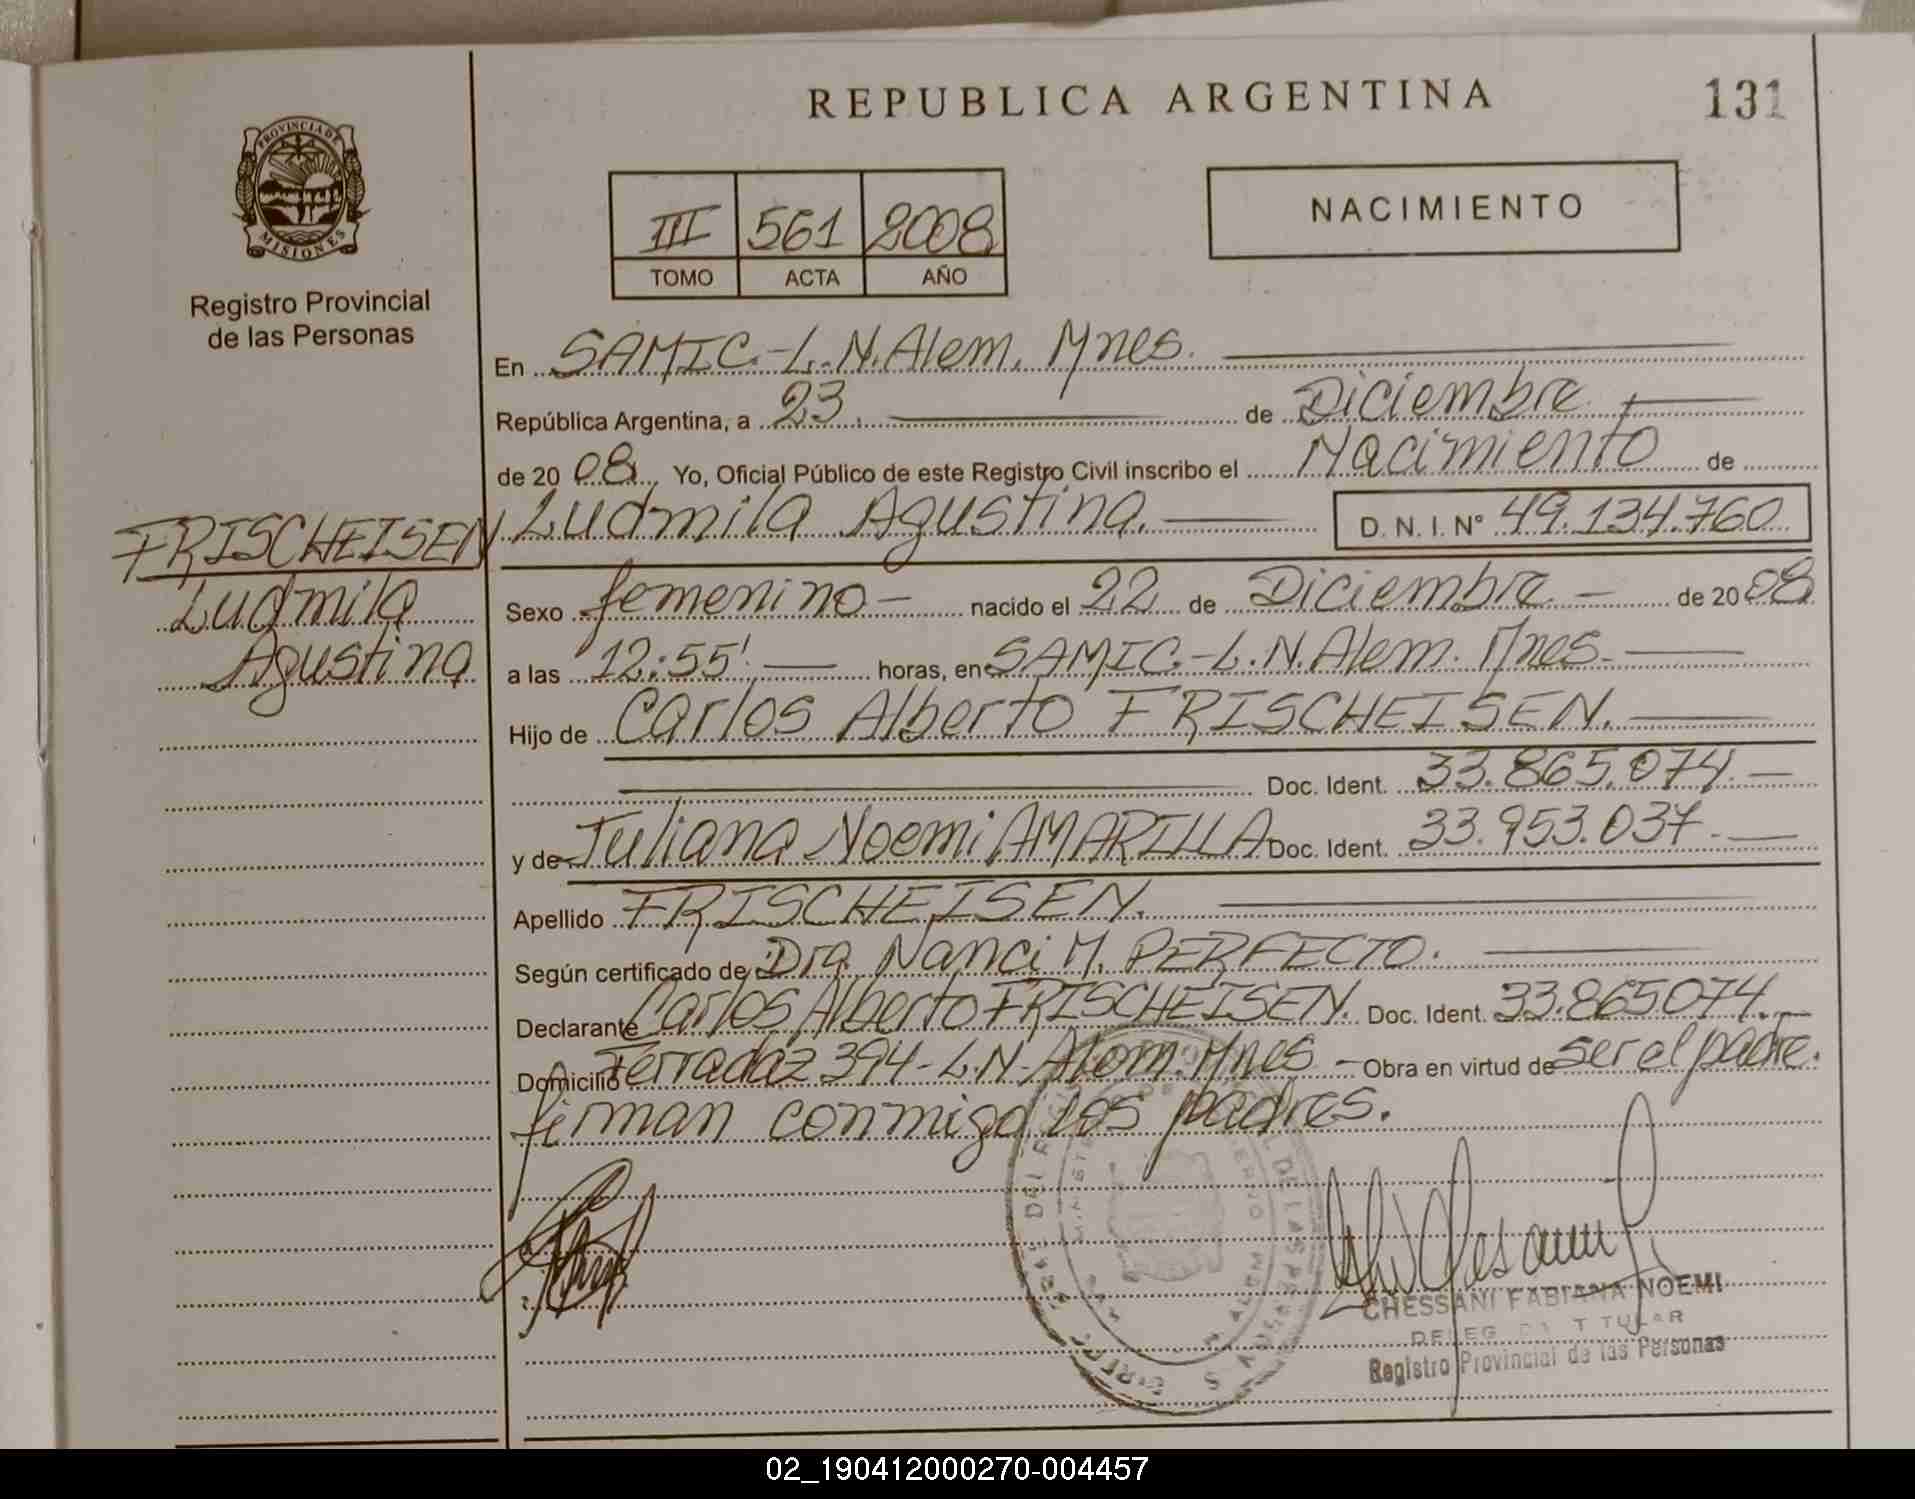 REPUBLICA ARGENTINA
131
PROVINCIA DE
MISIONES
Registro Provincial
de las Personas
III 561 2008
TOMO ACTA AÑO
NACIMIENTO
En SAMIC.-L.N.Alem. Mnes.
República Argentina, a 23. de Diciembre
de 2008. Yo, Oficial Público de este Registro Civil inscribo el Nacimiento de
Ludmila Agustina. D. N. I. N° 49.134.760
FRISCHEISEN
Ludmila
Agustina
Sexo femenino- nacido el 22 de Diciembre. - de 2008
a las 12:55' horas, en SAMIC.-L.N.Alem. Mnes.
Hijo de Carlos Alberto FRISCHEISEN.
Doc. Ident. 33.865.074.
y de Juliana Noemi AMARILLA Doc. Ident. 33.953.037.
Apellido FRISCHEISEN.
Según certificado de Dra. Nanci M. PERFECTO.
Declarante Carlos Alberto FRISCHEISEN. Doc. Ident. 33.865074.
Domicilio Terradaz 394-L.N-Alem.Mnes - Obra en virtud de ser el padre.
firman conmigo los padres.
CHESSANI FABIANA NOEMI
TITULAR
Registro Provincial de las Personas
02_190412000270-004457